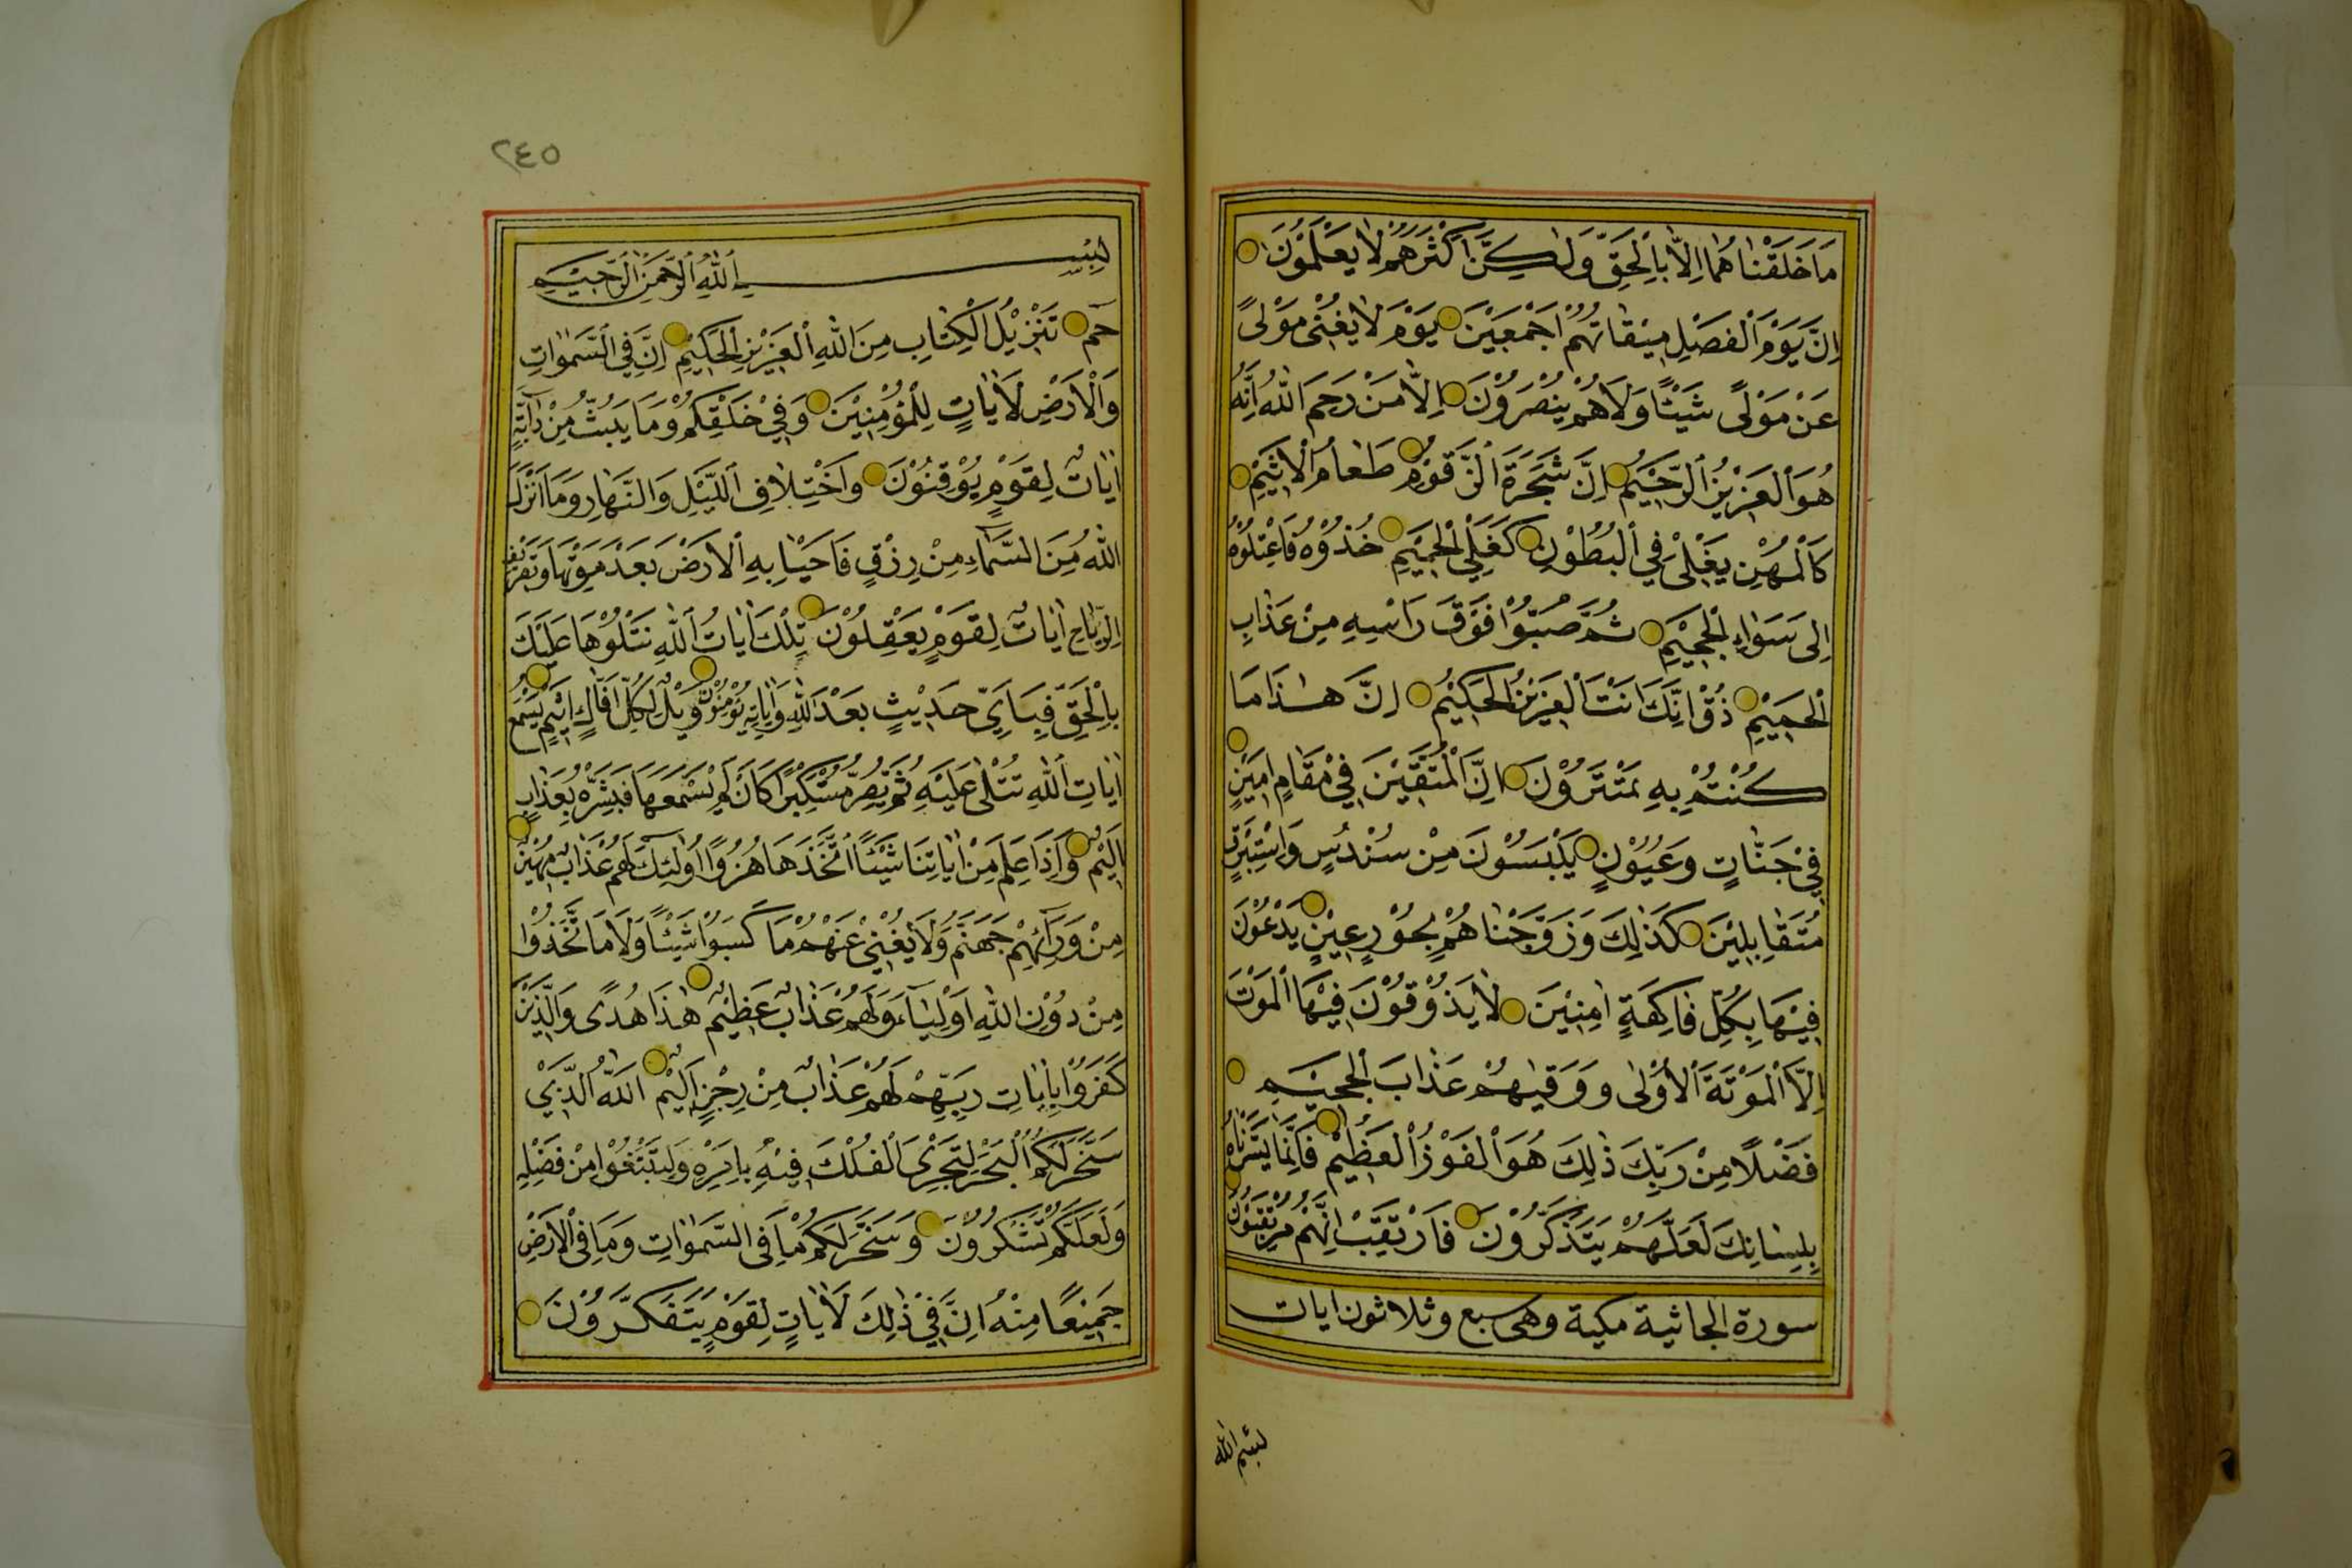 مَا خَلَقْنَاهُمَا اِلَّا بِالْحَقِّ وَلٰكِنَّ اَكْثَرَهُمْ لَا يَعْلَمُوْنَ
اِنَّ يَوْمَ الْفَصْلِ مِيْقَاتُهُمْ اَجْمَعِيْنَ يَوْمَ لَا يُغْنِىْ مَوْلًى
عَنْ مَوْلًى شَيْئًا وَلَا هُمْ يُنْصَرُوْنَ اِلَّا مَنْ رَحِمَ اللّٰهُ اِنَّهُ
هُوَ الْعَزِيْزُ الرَّحِيْمُ اِنَّ شَجَرَةَ الزَّقُّوْمِ طَعَامُ الْاَثِيْمِ
كَالْمُهْلِ يَغْلِىْ فِى الْبُطُوْنِ كَغَلْىِ الْحَمِيْمِ خُذُوْهُ فَاعْتِلُوْهُ
اِلٰى سَوَاءِ الْجَحِيْمِ ثُمَّ صُبُّوْا فَوْقَ رَاْسِهِ مِنْ عَذَابِ
الْحَمِيْمِ ذُقْ اِنَّكَ اَنْتَ الْعَزِيْزُ الْحَكِيْمُ اِنَّ هٰذَا مَا
كُنْتُمْ بِهِ تَمْتَرُوْنَ اِنَّ الْمُتَّقِيْنَ فِيْ مَقَامٍ اَمِيْنٍ
فِيْ جَنَّاتٍ وَعُيُوْنٍ يَلْبَسُوْنَ مِنْ سُنْدُسٍ وَاِسْتَبْرَقٍ
مُتَقَابِلِيْنَ كَذٰلِكَ وَزَوَّجْنَاهُمْ بِحُوْرٍ عِيْنٍ يَدْعُوْنَ
فِيْهَا بِكُلِّ فَاكِهَةٍ اٰمِنِيْنَ لَا يَذُوْقُوْنَ فِيْهَا الْمَوْتَ
اِلَّا الْمَوْتَةَ الْاُوْلٰى وَوَقٰيهُمْ عَذَابَ الْجَحِيْمِ
فَضْلًا مِنْ رَبِّكَ ذٰلِكَ هُوَ الْفَوْزُ الْعَظِيْمُ فَاِنَّمَا يَسَّرْنَاهُ
بِلِسَانِكَ لَعَلَّهُمْ يَتَذَكَّرُوْنَ فَارْتَقِبْ اِنَّهُمْ مُرْتَقِبُوْنَ
سورة الجاثية مكية وهى سبع وثلاثون ايات
بسم الله
٢٤٥
بِسْمِ اللّٰهِ الرَّحْمٰنِ الرَّحِيْمِ
حٰمٓ تَنْزِيْلُ الْكِتَابِ مِنَ اللّٰهِ الْعَزِيْزِ الْحَكِيْمِ اِنَّ فِى السَّمٰوَاتِ
وَالْاَرْضِ لَاٰيَاتٍ لِلْمُؤْمِنِيْنَ وَفِيْ خَلْقِكُمْ وَمَا يَبُثُّ مِنْ دَابَّةٍ
اٰيَاتٌ لِقَوْمٍ يُوْقِنُوْنَ وَاخْتِلَافِ اللَّيْلِ وَالنَّهَارِ وَمَا اَنْزَلَ
اللّٰهُ مِنَ السَّمَاءِ مِنْ رِزْقٍ فَاَحْيَا بِهِ الْاَرْضَ بَعْدَ مَوْتِهَا وَتَصْرِيْفِ
الرِّيَاحِ اٰيَاتٌ لِقَوْمٍ يَعْقِلُوْنَ تِلْكَ اٰيَاتُ اللّٰهِ نَتْلُوْهَا عَلَيْكَ
بِالْحَقِّ فَبِاَىِّ حَدِيْثٍ بَعْدَ اللّٰهِ وَاٰيَاتِهِ يُؤْمِنُوْنَ وَيْلٌ لِكُلِّ اَفَّاكٍ اَثِيْمٍ يَسْمَعُ
اٰيَاتِ اللّٰهِ تُتْلٰى عَلَيْهِ ثُمَّ يُصِرُّ مُسْتَكْبِرًا كَاَنْ لَمْ يَسْمَعْهَا فَبَشِّرْهُ بِعَذَابٍ
اَلِيْمٍ وَاِذَا عَلِمَ مِنْ اٰيَاتِنَا شَيْئًا اتَّخَذَهَا هُزُوًا اُولٰئِكَ لَهُمْ عَذَابٌ مُهِيْنٌ
مِنْ وَرَائِهِمْ جَهَنَّمُ وَلَا يُغْنِيْ عَنْهُمْ مَا كَسَبُوْا شَيْئًا وَلَا مَا اتَّخَذُوْا
مِنْ دُوْنِ اللّٰهِ اَوْلِيَاءَ وَلَهُمْ عَذَابٌ عَظِيْمٌ هٰذَا هُدًى وَالَّذِيْنَ
كَفَرُوْا بِاٰيَاتِ رَبِّهِمْ لَهُمْ عَذَابٌ مِنْ رِجْزٍ اَلِيْمٌ اَللّٰهُ الَّذِيْ
سَخَّرَ لَكُمُ الْبَحْرَ لِتَجْرِىَ الْفُلْكُ فِيْهِ بِاَمْرِهِ وَلِتَبْتَغُوْا مِنْ فَضْلِهِ
وَلَعَلَّكُمْ تَشْكُرُوْنَ وَسَخَّرَ لَكُمْ مَا فِى السَّمٰوَاتِ وَمَا فِى الْاَرْضِ
جَمِيْعًا مِنْهُ اِنَّ فِيْ ذٰلِكَ لَاٰيَاتٍ لِقَوْمٍ يَتَفَكَّرُوْنَ